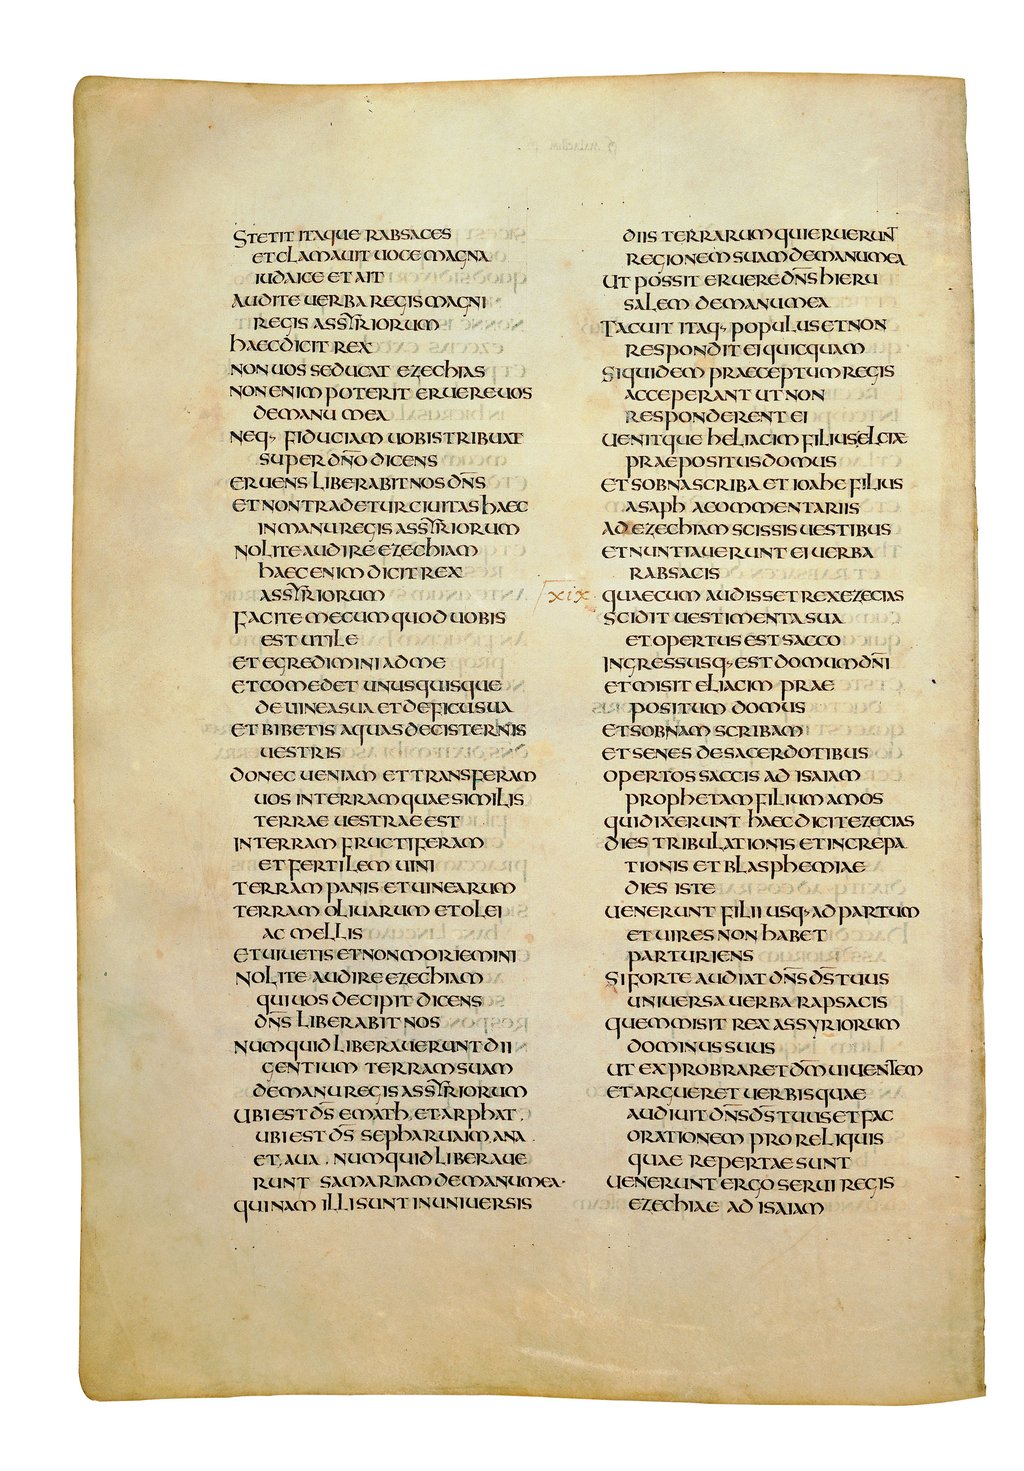 STETIT ITAQUE RABSACES
ET CLAMAUIT UOCE MAGNA
IUDAICE ET AIT
AUDITE UERBA REGIS MAGNI
REGIS ASSYRIORUM
HAEC DICIT REX
NON UOS SEDUCAT EZECHIAS
NON ENIM POTERIT ERUERE UOS
DE MANU MEA
NEQ· FIDUCIAM UOBIS TRIBUAT
SUPER DN̄O DICENS
ERUENS LIBERABIT NOS DN̄S
ET NON TRADETUR CIUITAS HAEC
IN MANU REGIS ASSYRIORUM
NOLITE AUDIRE EZECHIAM
HAEC ENIM DICIT REX
ASSYRIORUM
FACITE MECUM QUOD UOBIS
EST UTILE
ET EGREDIMINI AD ME
ET COMEDET UNUSQUISQUE
DE UINEA SUA ET DE FICU SUA
ET BIBETIS AQUAS DE CISTERNIS
UESTRIS
DONEC UENIAM ET TRANSFERAM
UOS IN TERRAM QUAE SIMILIS
TERRAE UESTRAE EST
IN TERRAM FRUCTIFERAM
ET FERTILEM UINI
TERRAM PANIS ET UINEARUM
TERRAM OLIUARUM ET OLEI
AC MELLIS
ET UIUETIS ET NON MORIEMINI
NOLITE AUDIRE EZECHIAM
QUI UOS DECIPIT DICENS
DN̄S LIBERABIT NOS
NUMQUID LIBERAUERUNT DII
GENTIUM TERRAM SUAM
DE MANU REGIS ASSYRIORUM
UBI EST DS̄ EMATH, ET ARPHAT,
UBI EST DS̄ SEPHARUAIM, ANA .
ET, AUA . NUMQUID LIBERAUE
RUNT SAMARIAM DE MANU MEA·
QUINAM ILLI SUNT IN UNIUERSIS
DIIS TERRARUM QUI ERUERUNT
REGIONEM SUAM DE MANU MEA
UT POSSIT ERUERE DN̄S HIERU
SALEM DE MANU MEA
TACUIT ITAQ· POPULUS ET NON
RESPONDIT EI QUICQUAM
SIQUIDEM PRAECEPTUM REGIS
ACCEPERANT UT NON
RESPONDERENT EI
UENITQUE HELIACIM FILIUS ELCIAE
PRAEPOSITUS DOMUS
ET SOBNA SCRIBA ET IOAHE FILIUS
ASAPH A COMMENTARIIS
AD EZECHIAM SCISSIS UESTIBUS
ET NUNTIAUERUNT EI UERBA
RABSACIS
XIX· QUAE CUM AUDISSET REX EZECIAS
SCIDIT UESTIMENTA SUA
ET OPERTUS EST SACCO
INGRESSUSQ· EST DOMUM DN̄I
ET MISIT ELIACIM PRAE
POSITUM DOMUS
ET SOBNAM SCRIBAM
ET SENES DE SACERDOTIBUS
OPERTOS SACCIS AD ISAIAM
PROPHETAM FILIUM AMOS
QUI DIXERUNT HAEC DICIT EZECIAS
DIES TRIBULATIONIS ET INCREPA
TIONIS ET BLASPHEMIAE
DIES ISTE
UENERUNT FILII USQ· AD PARTUM
ET UIRES NON HABET
PARTURIENS
SI FORTE AUDIAT DN̄S DS̄ TUUS
UNIUERSA UERBA RAPSACIS
QUEM MISIT REX ASSYRIORUM
DOMINUS SUUS
UT EXPROBRARET DM̄ UIUENTEM
ET ARGUERET UERBIS QUAE
AUDIUIT DN̄S DS̄ TUUS ET FAC
ORATIONEM PRO RELIQUIS
QUAE REPERTAE SUNT
UENERUNT ERGO SERUI REGIS
EZECHIAE AD ISAIAM